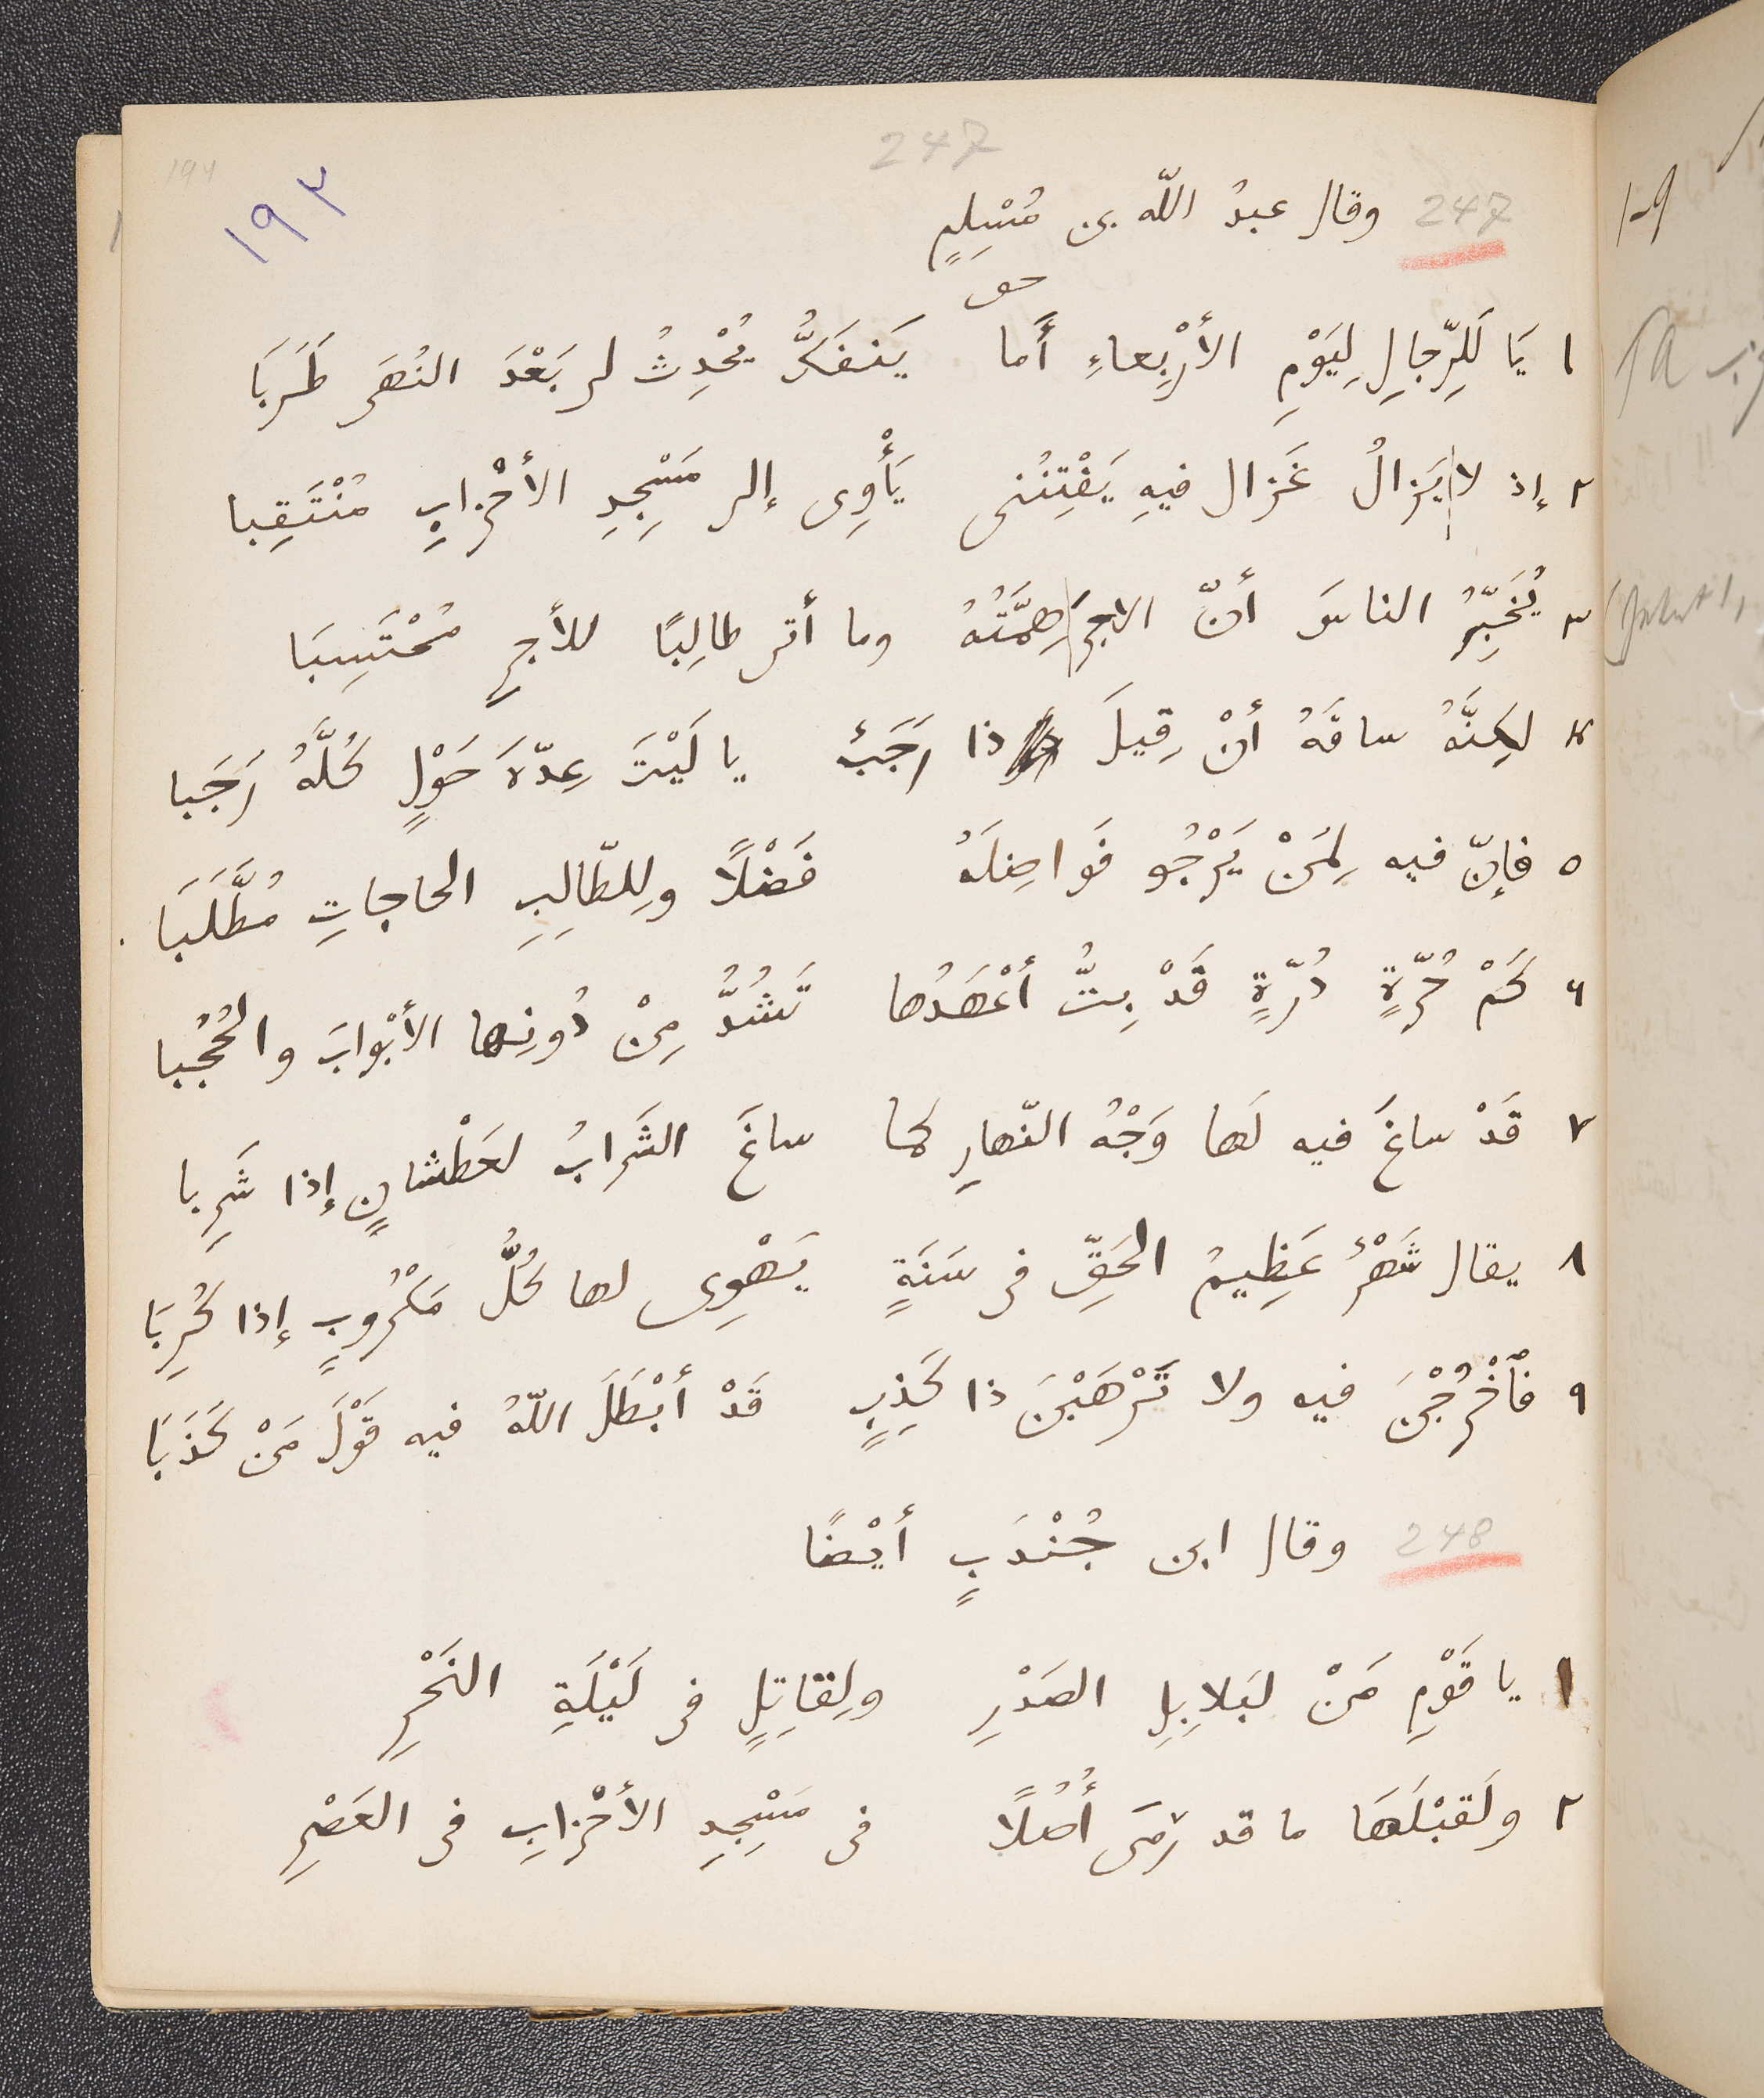 247
١٩٣
247 وقال عبدُ اللّه بن مُسْلِمٍ
١ يَا لَلِرّجالِ لِيَوْمِ الأرْبِعاءِ أَما يَنفَكُّ يُحْدِثُ لى بَعْدَ النُهَى طَرَبَا
٢ إذ لا يَزالُ غَزال فيهِ يَفْتِنُنى يَأْوِى إلى مَسْجِدِ الأحْزابِ مُنْتَقِبا
٣ يُخَبِّرُ الناسَ أنّ الاجرَ هِمَّتُهُ وما أتى طالِبًا للأجرِ مُحْتَسِبَا
٤ لكِنَّهُ ساقَهُ أنْ قِيلَ ذا رَجَبٌ يا لَيْتَ عِدّةَ حَوْلٍ كُلَّهُ رَجَبا
٥ فإنّ فيه لِمَنْ يَرْجُو فَواضِلَهُ فَضْلًا ولِلطّالِبِ الحاجاتِ مُطَّلَبَا
٦ كَمْ حُرّةٍ دُرّةٍ قَدْ بِتُّ أعْهَدُها تَشُدُّ مِنْ دُونِها الأبْوابَ والحُجُبا
٧ قَدْ ساغَ فيه لَها وَجْهُ النّهارِ كما ساغَ الشَرابُ لعَطْشانٍ إذا شَرِبا
٨ يقال شَهْرٌ عَظِيمُ الحَقِّ فى سَنَةٍ يَهْوِى لها كُلُّ مَكْرُوبٍ إذا كُرِبَا
٩ فٱخْرُجْنَ فيه ولا تَرْهَبْنَ ذا كَذِبٍ قَدْ أبْطَلَ اللّهُ فيه قَوْلَ مَنْ كَذَبَا
248 وقال ابن جُنْدَبٍ أيْضًا
١ يا قَوْمِ مَنْ لبَلابِلِ الصَدْرِ ولِقاتِلٍ فى لَيْلَةِ النَحْرِ
٢ ولَقبْلَهَا ما قد رَمَى أُصُلًا فى مَسْجِدِ الأحْزابِ فى العَصْرِ